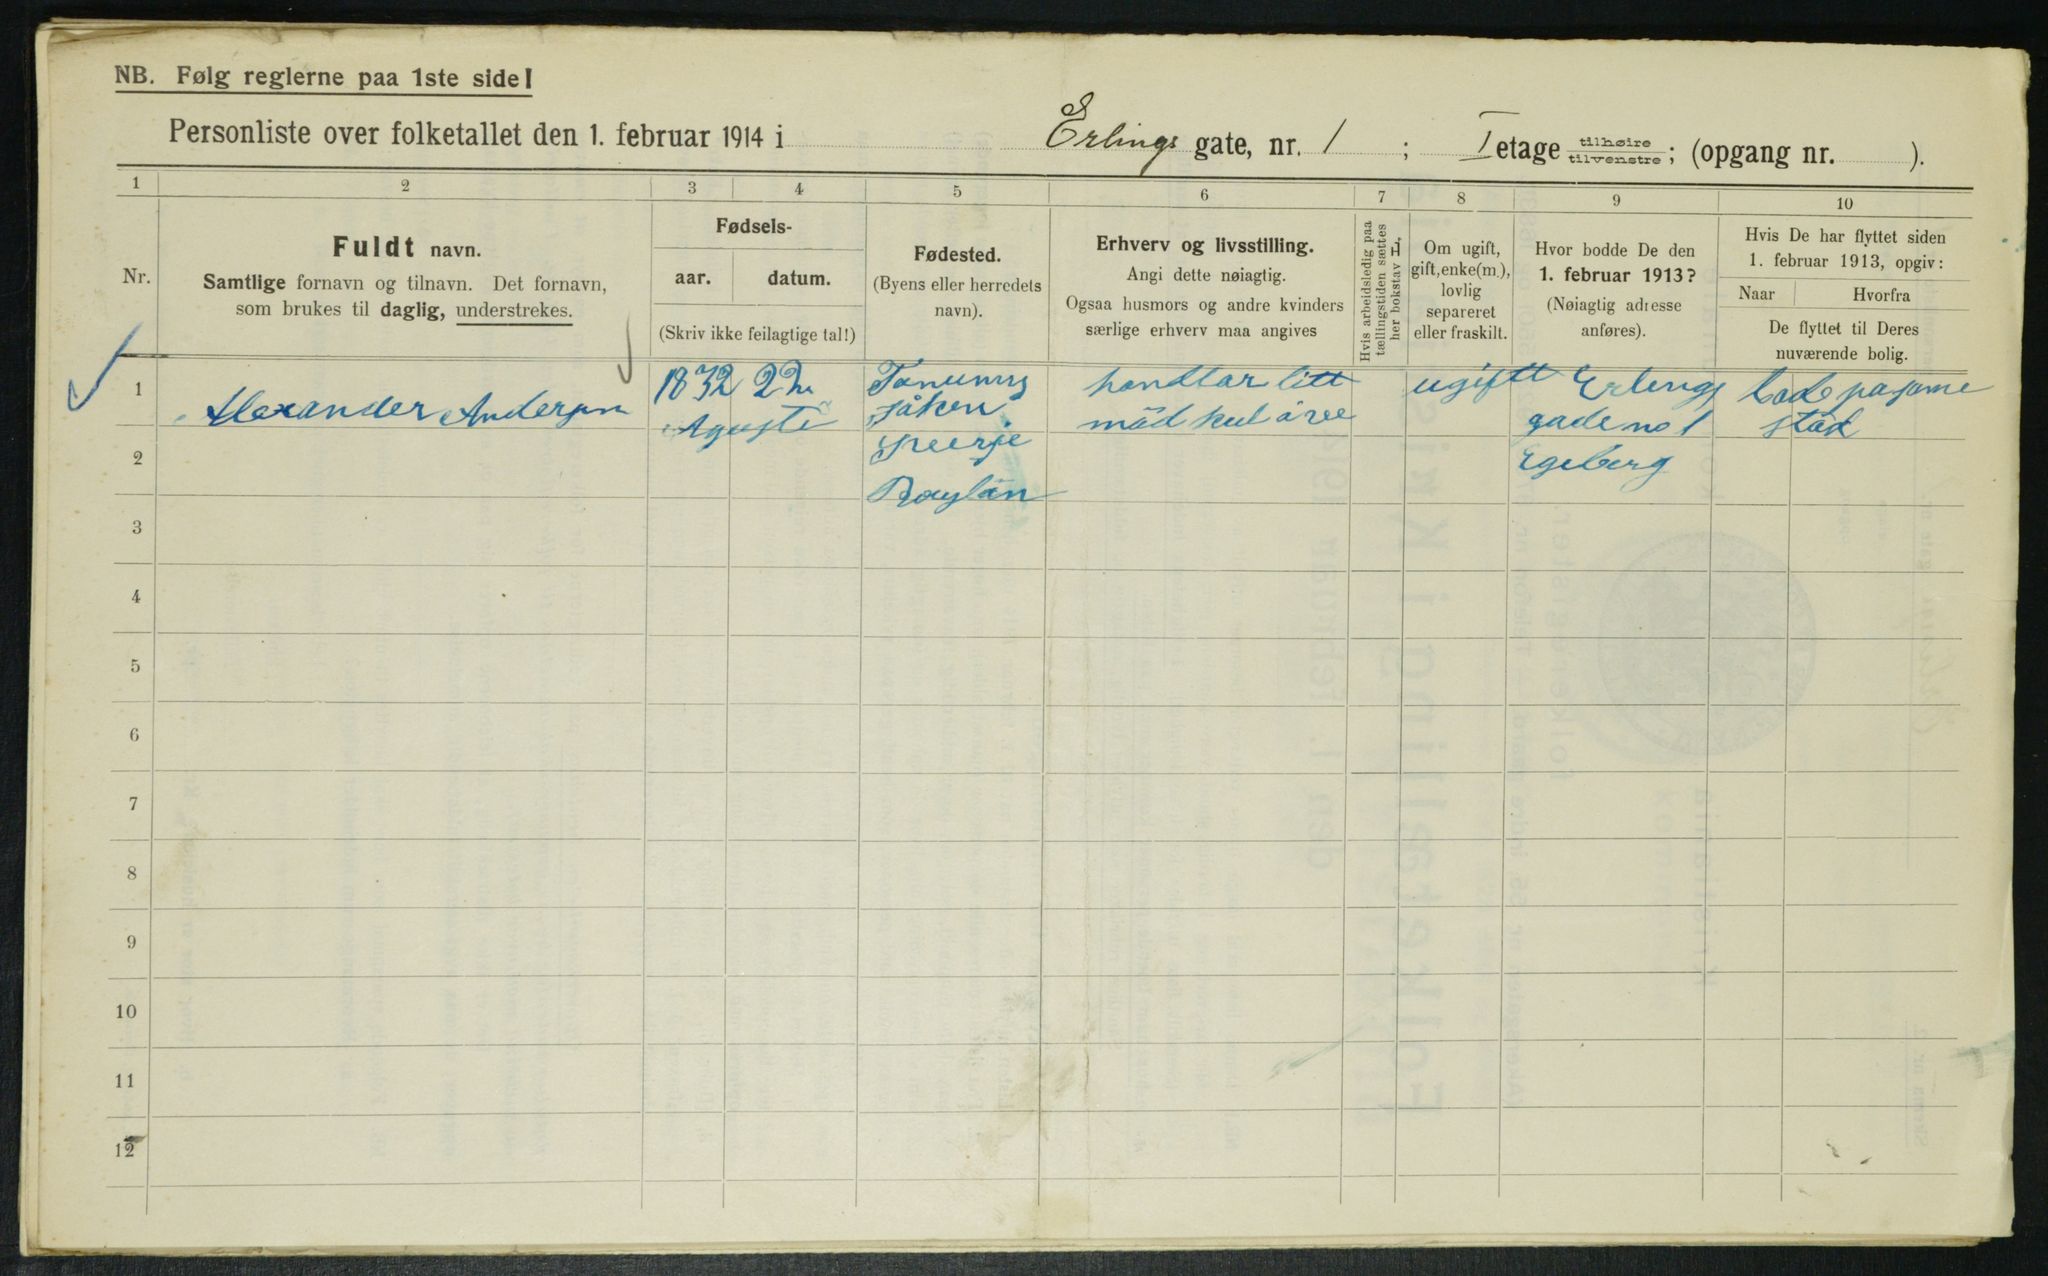 NB. Følg reglerne paa 1ste side!
Personliste over folketallet den 1. februar 1914 i Erlings gate, nr. 1 ; I etage tilhøire tilvenstre; (opgang nr. ).
1 2 3 4 5 6 7 8 9 10
Nr.
Fuldt navn.
Samtlige fornavn og tilnavn. Det fornavn,
som brukes til daglig, understrekes.
Fødsels-
aar. datum.
(Skriv ikke feilagtige tal!)
Fødested.
(Byens eller herredets
navn).
Erhverv og livsstilling.
Angi dette nøiagtig.
Ogsaa husmors og andre kvinders
særlige erhverv maa angives
Hvis arbeidsledig paa
tællingstiden sættes
her bokstav L.
Om ugift,
gift, enke(m.),
lovlig
separeret
eller fraskilt.
Hvor bodde De den
1. februar 1913?
(Nøiagtig adresse
anføres).
Hvis De har flyttet siden
1. februar 1913, opgiv:
Naar Hvorfra
De flyttet til Deres
nuværende bolig.
1
Alexander Anderson
1832 22
Agusti
Tanums
såken
Baylän
handlar litt
mäd kul åvee
ugift
Erlings
gade no 1
Egeberg
bode pa same
städ
2
3
4
5
6
7
8
9
10
11
12